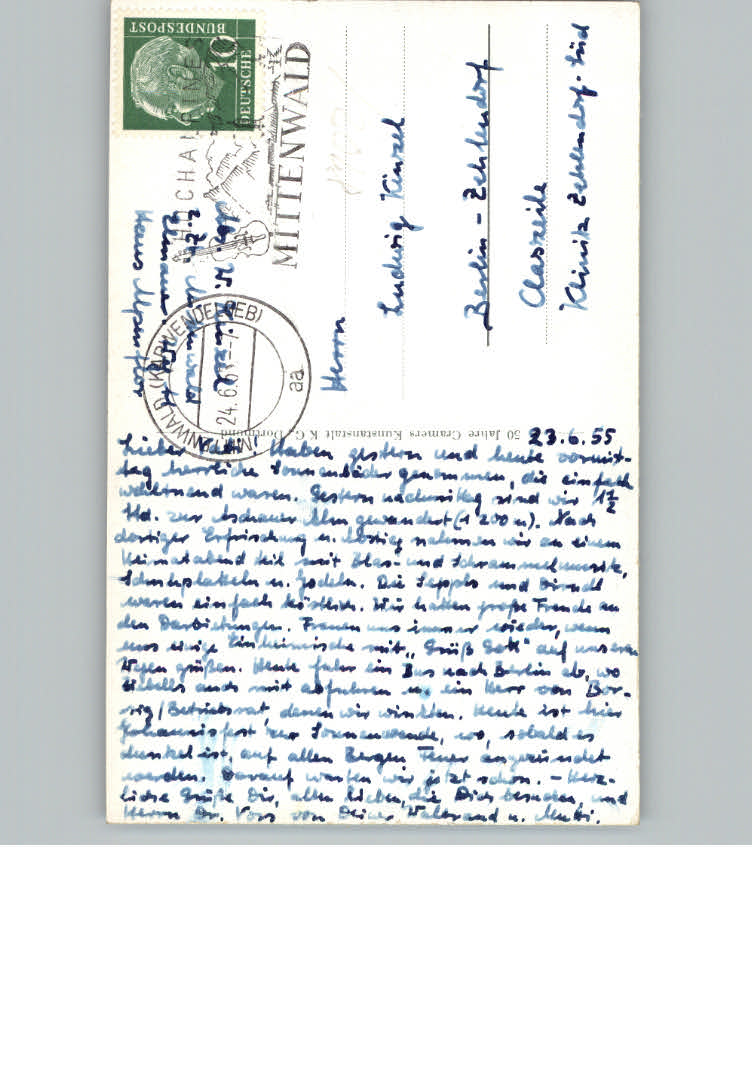 23.6.55
Lieber Vati! Haben gestern und heute vormit-
tag herrliche Sonnenbäder genommen, die einfach
wohltuend waren. Gestern nachmittag sind wir 1½
Std. zur Aschauer Alm gewandert (1200 m). Nach
dortiger Erfrischung u. lustig nahmen wir an einem
Heimatabend teil mit Blas- und Schrammelmusik,
Schuhplatteln u. Jodeln. Die Seppls und Dirndl
waren einfach köstlich. Wir hatten große Freude an
den Darbietungen. Freuen uns immer wieder, wenn
uns einige Einheimische mit „Grüß Gott" auf unseren
Wegen grüßen. Heute fuhr ein Bus nach Berlin ab, wo
auch mit abfuhren u. ein Herr von Bor-
sig/Betriebsrat, denen wir winkten. Heute ist hier
Johannisfest zur Sonnenwende, wo, sobald es
dunkel ist, auf allen Bergen Feuer angezündet
werden. Darauf warten wir jetzt schon. – Herz-
liche Grüße Dir, allen Lieben, die Dich besuchen und
Herrn Dr. Voss von Deiner Waltraud u. Mutti.
50 Jahre Cramers Kunstanstalt K.G., Dortmund
DEUTSCHE
BUNDESPOST
10
MITTENWALD
MITTENWALD (KARWENDELGEB)
24.6.
aa
Abs. W. Kirsch
z. Zt. Mittenwald
Haus Alpenflor
Herrn
Ludwig Kirsch
Berlin-Zehlendorf
Claszeile
Klinik Zehlendorf-Süd